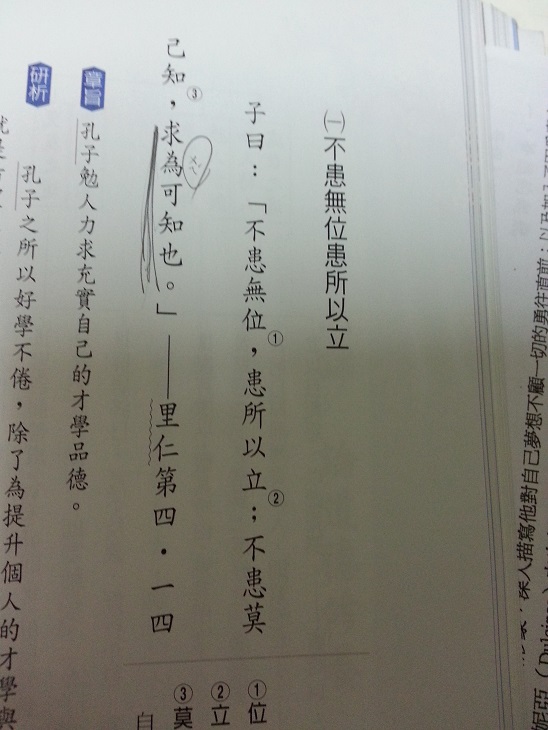 ㈠不患無位患所以立
子曰：「不患無位①，患所以立②；不患莫
己知③，求為可知也。」——里仁第四．一四
章旨
孔子勉人力求充實自己的才學品德。
研析
孔子之所以好學不倦，除了為提升個人的才學與
①位
②立
③莫
自
深入描寫他對自己夢想不顧一切的勇往直前